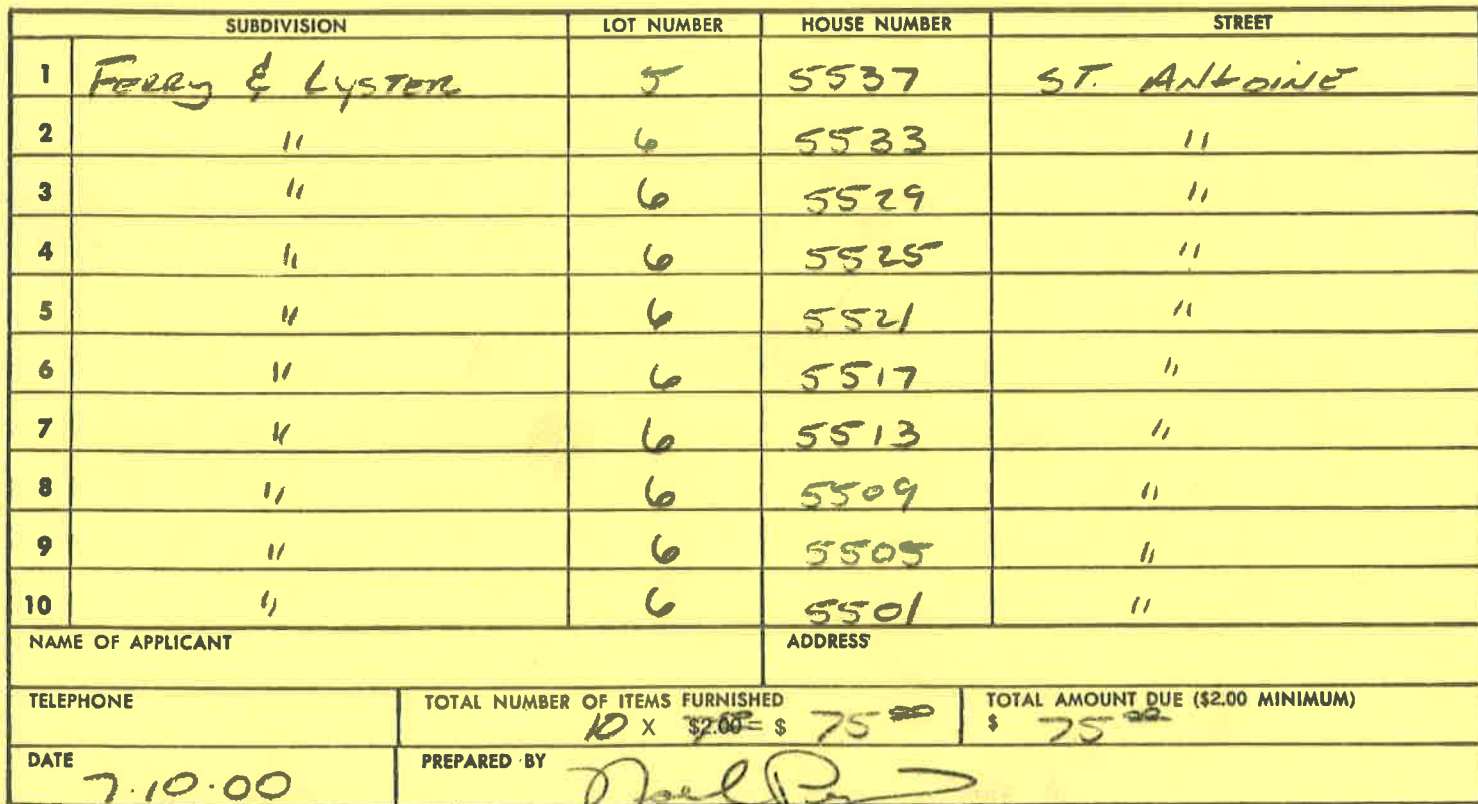 SUBDIVISION LOT NUMBER HOUSE NUMBER STREET
1 Ferry & Lyster 5 5537 St. Antoine
2 " 6 5533 "
3 " 6 5529 "
4 " 6 5525 "
5 " 6 5521 "
6 " 6 5517 "
7 " 6 5513 "
8 " 6 5509 "
9 " 6 5505 "
10 " 6 5501 "
NAME OF APPLICANT ADDRESS
TELEPHONE TOTAL NUMBER OF ITEMS FURNISHED TOTAL AMOUNT DUE ($2.00 MINIMUM)
10 X $2.00 = $ 75 00 $ 75 00
DATE PREPARED BY
7.10.00 Noel